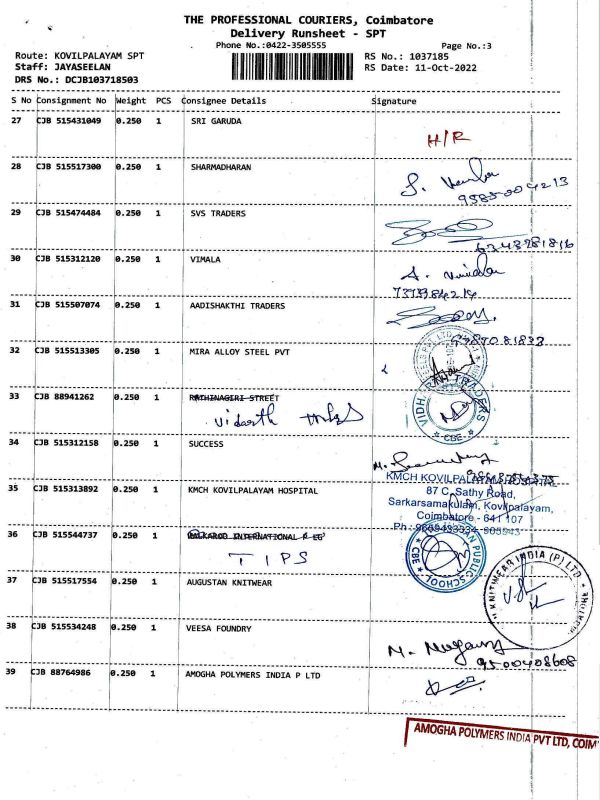 THE PROFESSIONAL COURIERS, Coimbatore
Delivery Runsheet - SPT
Phone No.:0422-3505555 Page No.:3
Route: KOVILPALAYAM SPT RS No.: 1037185
Staff: JAYASEELAN RS Date: 11-Oct-2022
DRS No.: DCJB103718503
S No Consignment No Weight PCS Consignee Details Signature
27 CJB 515431049 0.250 1 SRI GARUDA
H/R
28 CJB 515517300 0.250 1 SHARMADHARAN
29 CJB 515474484 0.250 1 SVS TRADERS
30 CJB 515312120 0.250 1 VIMALA
31 CJB 515507074 0.250 1 AADISHAKTHI TRADERS
32 CJB 515513305 0.250 1 MIRA ALLOY STEEL PVT
33 CJB 88941262 0.250 1 RATHINAGIRI STREET
VIDHARTH TRADERS
* CBE *
34 CJB 515312158 0.250 1 SUCCESS
35 CJB 515313892 0.250 1 KMCH KOVILPALAYAM HOSPITAL
KMCH KOVILPALAYAM HOSPITAL
87 C, Sathy Road,
Sarkarsamakulam, Kovilpalayam,
Coimbatore - 641 107
36 CJB 515544737 0.250 1 INTERNATIONAL
TIPS
PUBLIC SCHOOL * CBE *
37 CJB 515517554 0.250 1 AUGUSTAN KNITWEAR
KNITWEAR INDIA (P) LTD
38 CJB 515534248 0.250 1 VEESA FOUNDRY
9500408608
39 CJB 88764986 0.250 1 AMOGHA POLYMERS INDIA P LTD
AMOGHA POLYMERS INDIA PVT LTD, COIM